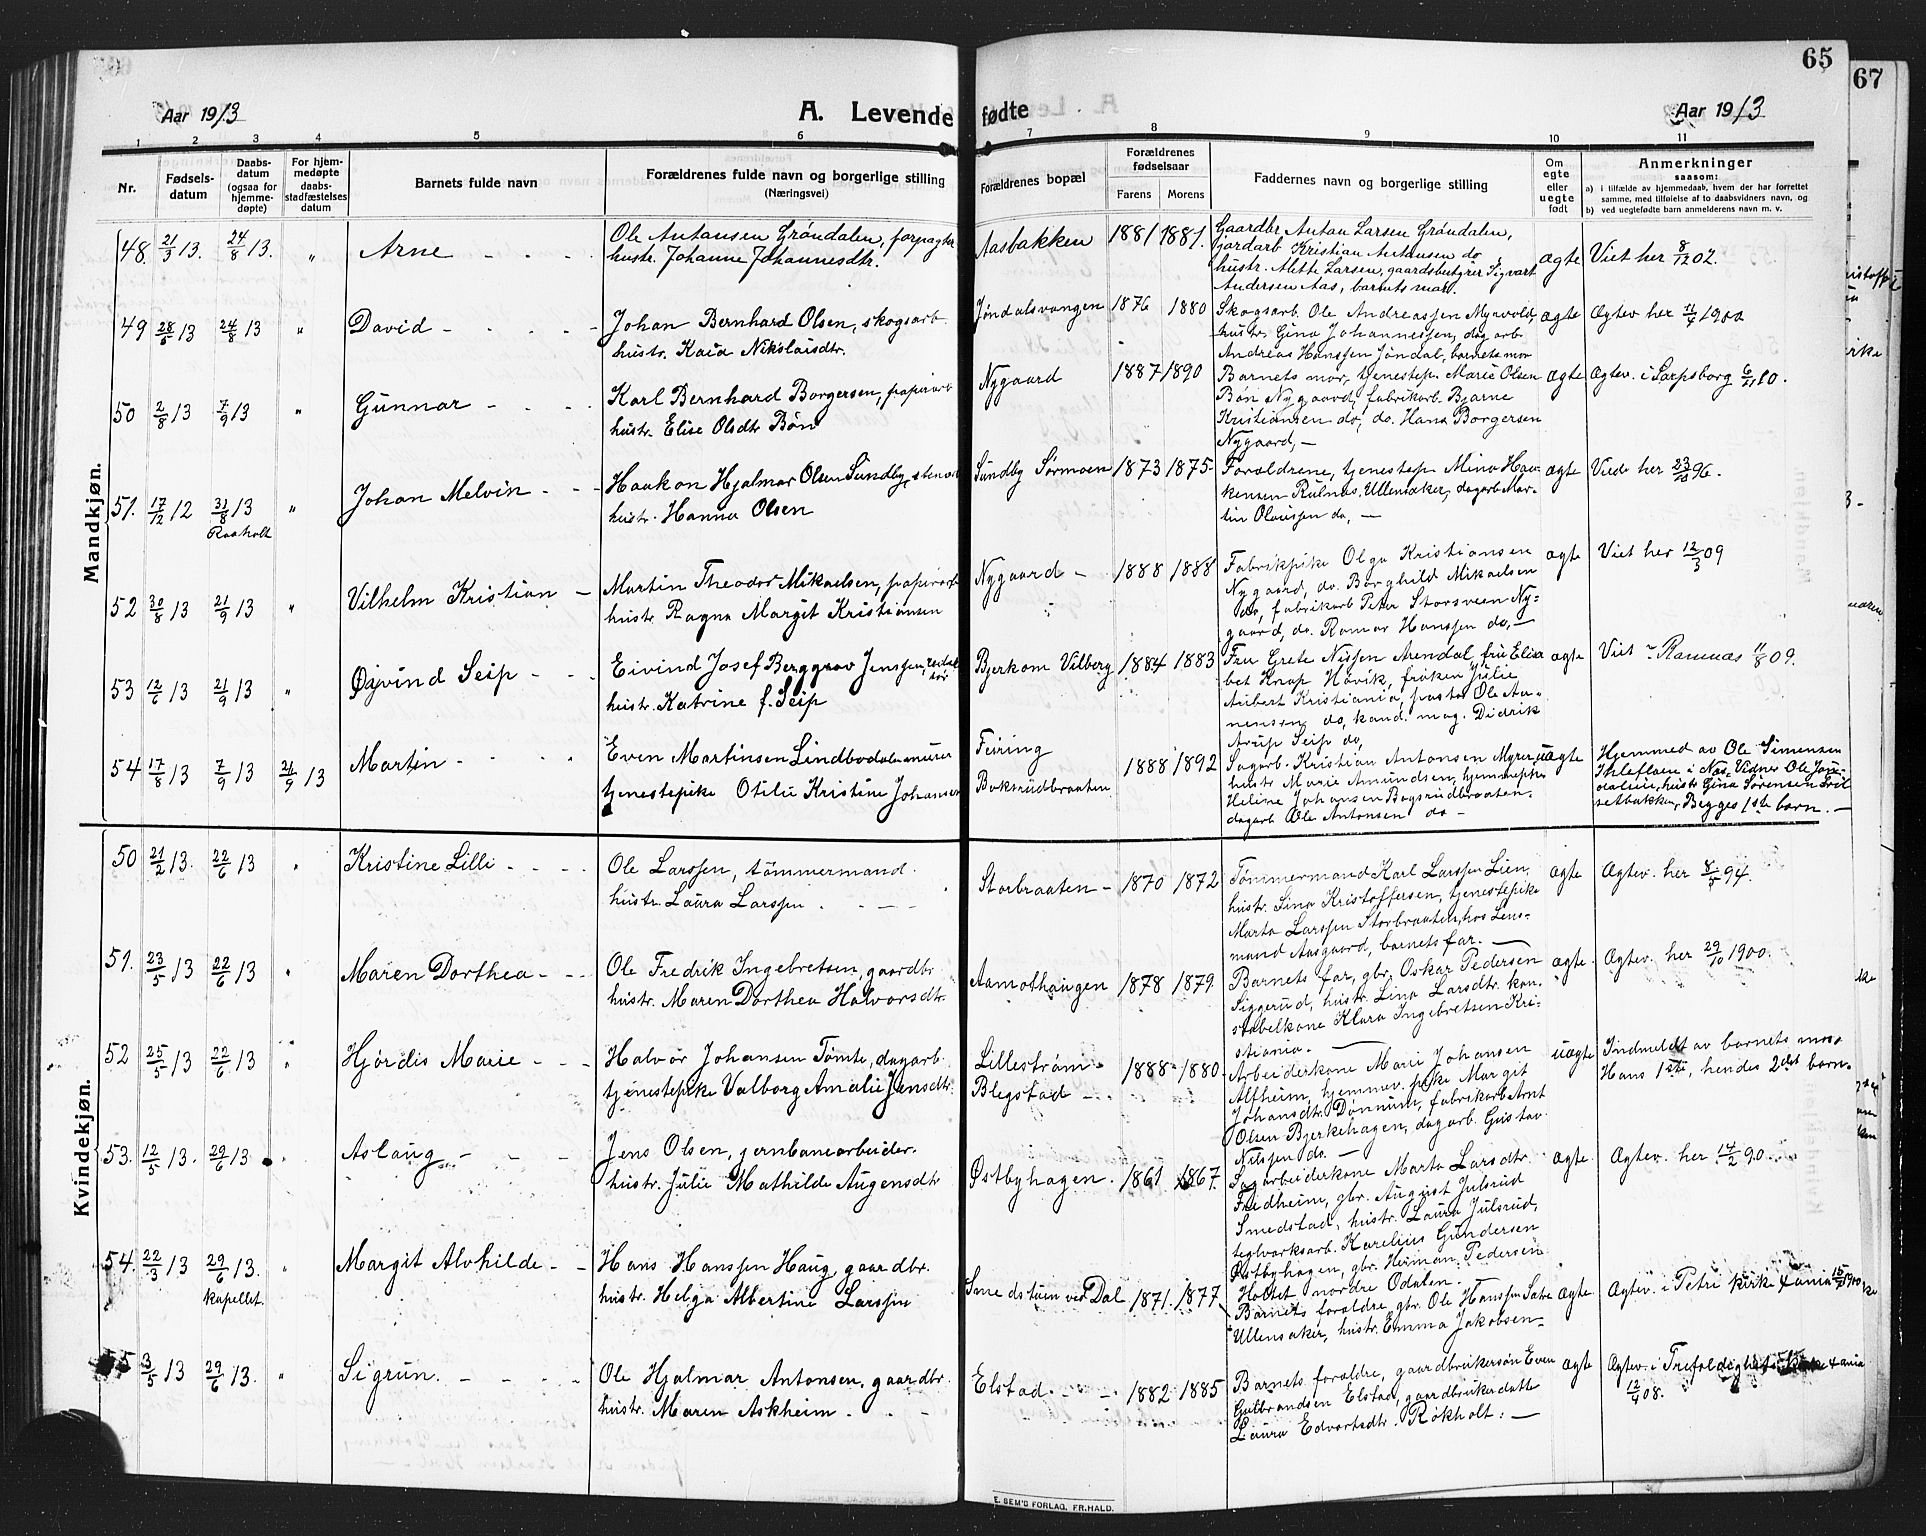 65
67
Aar 1913
A. Levende fødte
Aar 1913
1 2 3 4 5 6 7 8 9 10 11
Nr.
Fødsels-
datum
Daabs-
datum
(ogsaa for
hjemme-
døpte)
For hjem-
medøpte
daabs-
stadfæstelses
datum
Barnets fulde navn
Forældrenes fulde navn og borgerlige stilling
(Næringsvei)
Forældrenes bopæl
Forældrenes
fødselsaar
Farens Morens
Faddernes navn og borgerlige stilling
Om
egte
eller
uegte
født
Anmerkninger
saasom:
a) i tilfælde av hjemmedaab, hvem der har forrettet
samme, med tilføielse af to daabsvidners navn, og
b) ved uegtefødte barn anmelderens navn m. v.
Mandkjøn.
48. 21/3 13. 24/8 13. " Arne
Ole Antonsen Grøndalen, forpagter
hustr. Johanne Johannesdtr.
Aasbakken 1881 1881.
Gaardbr Anton Larsen Grøndalen,
jordarb. Kristian Antonsen do
hustr. Mette Larsen, gaardsbestyrer Sigvart
Andersen Aas, barnets mor.
ægte Viet her 8/12 02.
49 28/6 13 24/8 13 " David
Johan Bernhard Olsen, skogsarb.
hustr. Kaia Nikolaisdtr.
Jøndalsvangen 1876 1880
Skogsarb. Ole Andreassen Myrvold,
hustr. Gina Johannessen, dagarb
Andreas Hanssen Jøndal, barnets mor
ægte Ægtev her 11/4 1900
50 2/8 13 7/9 13 " Gunnar
Karl Bernhard Borgersen, papirarb
hustr. Elise Olsdtr Bøn
Nygaard 1887 1890
Barnets mor, tjenestep. Marie Olsen
Bøn Nygaard, fabrikarb. Bjarne
Kristiansen do, do. Hans Borgersen
Nygaard, —
ægte Ægtev. i Sarpsborg 6/11 10.
51. 17/12 12 31/8 13 " Johan Melvin
Raaholt
Haakon Hjalmar Olsen Sundby, stenarb
hustr. Hanna Olsen
Sundby Sørmoen 1873 1875
Forældrene, tjenestep Mina Haa-
kensen Rulnas, Ullensaker, dagarb Mar-
tin Olaussen do, —
ægte Viede her 23/10 96.
52 30/8 13 21/9 13 " Vilhelm Kristian
Martin Theodor Mikaelsen, papirarb
hustr. Ragna Margit Kristiansen
Nygaard 1888 1888
Fabrikpike Olga Kristiansen
Nygaard, do. Borghild Mikaelsen
do, fabrikarb Peter Storsveen Ny-
gaard, do. Ragnar Hanssen do. —
ægte Viet her 12/3 09
53 12/6 13 21/9 13 " Øivind Seip
Eivind Josef Berggrav Jenssen, redak
tør
hustr. Katrine f. Seip
Bjerkom Vilberg 1884 1883
Fru Grete Nissen Arendal, fru Elisa
bet Krap Høvik, frøken Julie
Aubert Kristiania, pastor Ole An-
nensen do, kand. mag. Didrik
Arup Seip do,
ægte Viet Ramnæs 11/8 09.
54 17/8 13 7/9 13 21/9 13 Martin
Even Martinsen Lindbodalen murer
tjenestepike Otilie Kristine Johansen
Feiring
Boksrudbraaten 1888 1892
Sagarb. Kristian Antonsen Myrer,
hustr. Marie Amundsen, hjemmepike
Heline Johansen Bogsrudbraaten,
dagarb Ole Antonsen do —
uægte
Hjemmed av Ole Simensen
i Næs. Vidner Ole
hustr. Gina Sørensen
Begges 1ste barn. —
Kvindekjøn.
50 21/2 13. 22/6 13 " Kristine Lilli
Ole Larssen, tømmermand.
hustr. Laura Larssen
Storbraaten 1870 1872
Tømmermand Karl Larssen Lien,
hustr. Lina Kristoffersen, tjenestepike
Marta Larssen Storbraaten, hos Lens-
mand Aasgaard, barnets far. —
ægte Ægtev. her 8/5 94.
51. 23/5 13 22/6 13 " Maren Dorthea
Ole Fredrik Ingebretsen, gaardbr
hustr. Maren Dorthea Halvorsdtr.
Aamothaugen 1878 1879
Barnets far, gbr. Oskar Pedersen
Siggerud, hustr. Lina Larsdtr. kon-
stabelkone Klara Ingebretsen Kri-
stiania. —
ægte. Ægtev. her 29/10 1900.
52 25/5 13 22/6 13 " Hjørdis Marie
Halvor Johansen Tømte, dagarb.
tjenestepike Valborg Amalie Jensdtr.
Lillestrøm
Blegstad 1888 1880.
Arbeiderkone Marie Johansen
Alfheim, hjemmev. pike Margit
Johansdtr. Dønnum, fabrikarb Arnt
Olsen Bjerkehagen, dagarb. Gustav
Nilssen do. —
uægte
Indmeldt av barnets mor
Hans 1ste, hendes 2det barn.
53. 12/5 13. 29/6 13 Aslaug
Jens Olsen, jernbanearbeider.
hustr. Julie Mathilde Augensdtr
Østbyhagen. 1861 1867.
Sagarbeiderkone Marta Larsdtr.
Fredheim, gbr. August Julsrud
Smedstad, hustr. Laura Julsrud,
teglverksarb. Karelius Gundersen
Østbyhagen, gbr. Herman Pedersen
Holtet, nordre Odalen.
ægte Ægtev. her 14/2 90.
54. 22/3 13 29/6 13. " Margit Alvhilde
Kapellet.
Hans Hanssen Haug, gaardbr.
hustr. Helga Albertine Larssen
Smedstuen ved Dal 1871. 1877
Barnets forældre, gbr. Ole Hanssen Sætre
Ullensaker, hustr. Emma Jakobsen
ægte Ægtev. i Petri kirke Xania 1900
5 3/5 13 29/6 13. " Sigrun.
Ole Hjalmar Antonsen, gaardbr.
hustr. Maren Askheim.
Elstad. 1882 1885
Barnets forældre, gaardbrukersøn Even
Gulbrandsen Elstad, gaardbrukerdatte
Laura Edvartsdtr. Røkholt: —
ægte Ægtev. i Trefoldigheds kirke Xania
12/4 08.
E. SEM'S FORLAG, FR.HALD.